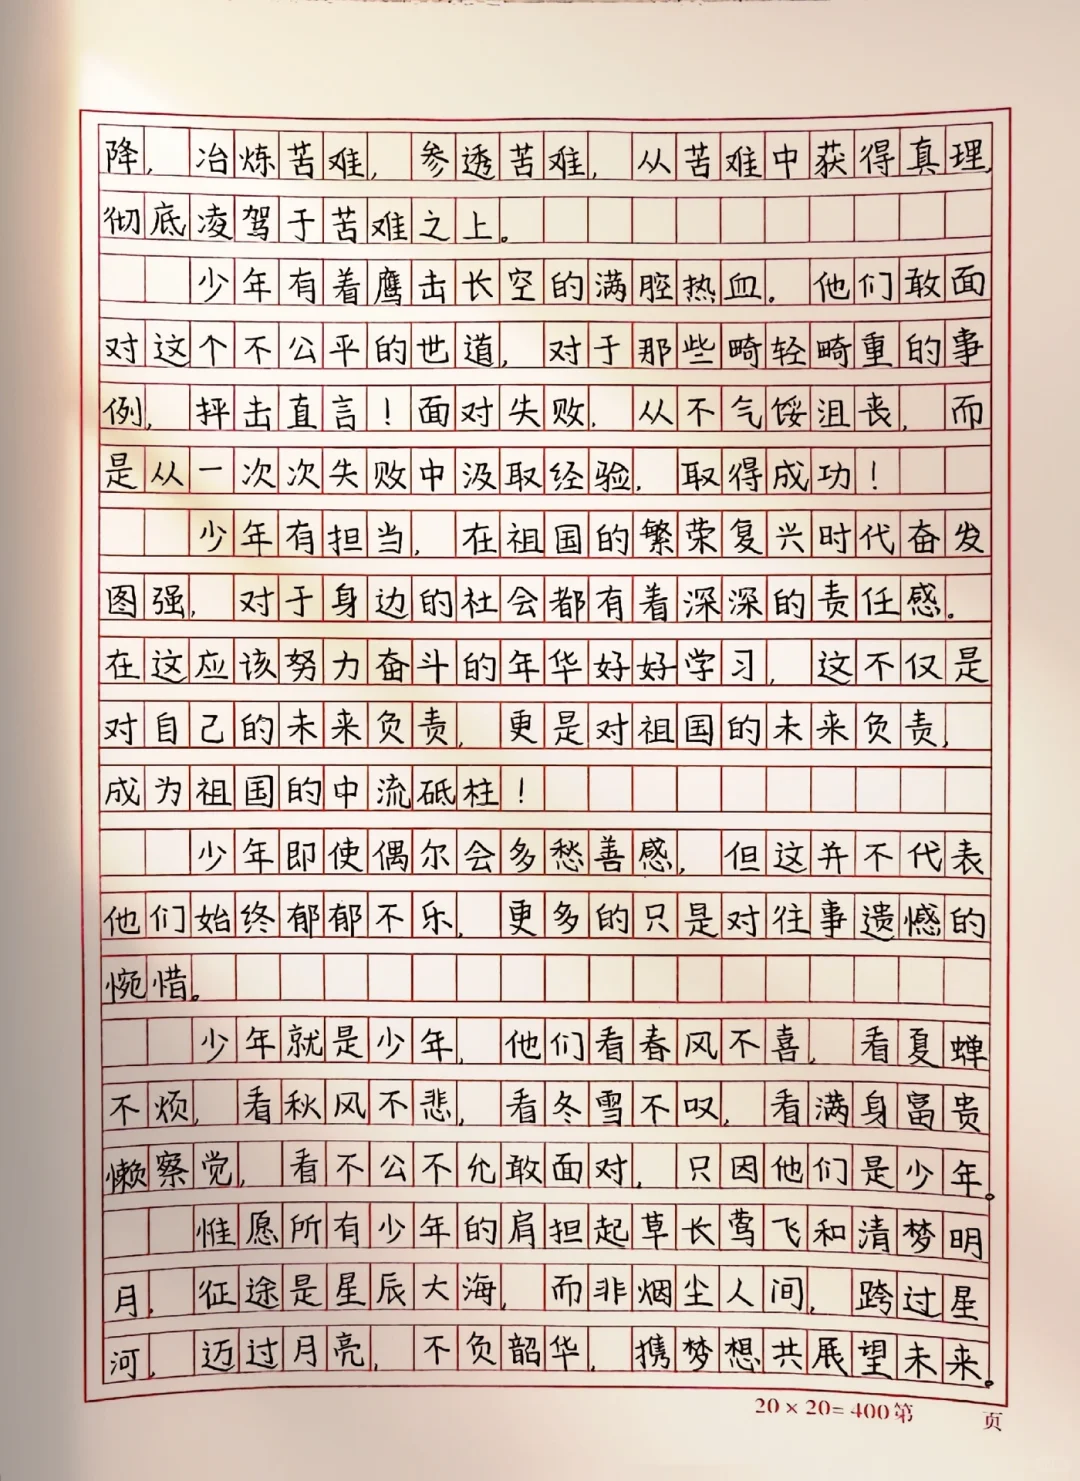 降，冶炼苦难，参透苦难，从苦难中获得真理，
彻底凌驾于苦难之上。
少年有着鹰击长空的满腔热血。他们敢面
对这个不公平的世道，对于那些畸轻畸重的事
例，抨击直言！面对失败，从不气馁沮丧，而
是从一次次失败中汲取经验，取得成功！
少年有担当，在祖国的繁荣复兴时代奋发
图强，对于身边的社会都有着深深的责任感。
在这应该努力奋斗的年华好好学习，这不仅是
对自己的未来负责，更是对祖国的未来负责，
成为祖国的中流砥柱！
少年即使偶尔会多愁善感，但这并不代表
他们始终郁郁不乐，更多的只是对往事遗憾的
惋惜。
少年就是少年，他们看春风不喜，看夏蝉
不烦，看秋风不悲，看冬雪不叹，看满身富贵
懒察觉，看不公不允敢面对，只因他们是少年。
惟愿所有少年的肩担起草长莺飞和清梦明
月，征途是星辰大海，而非烟尘人间，跨过星
河，迈过月亮，不负韶华，携梦想共展望未来。
20×20=400第 页